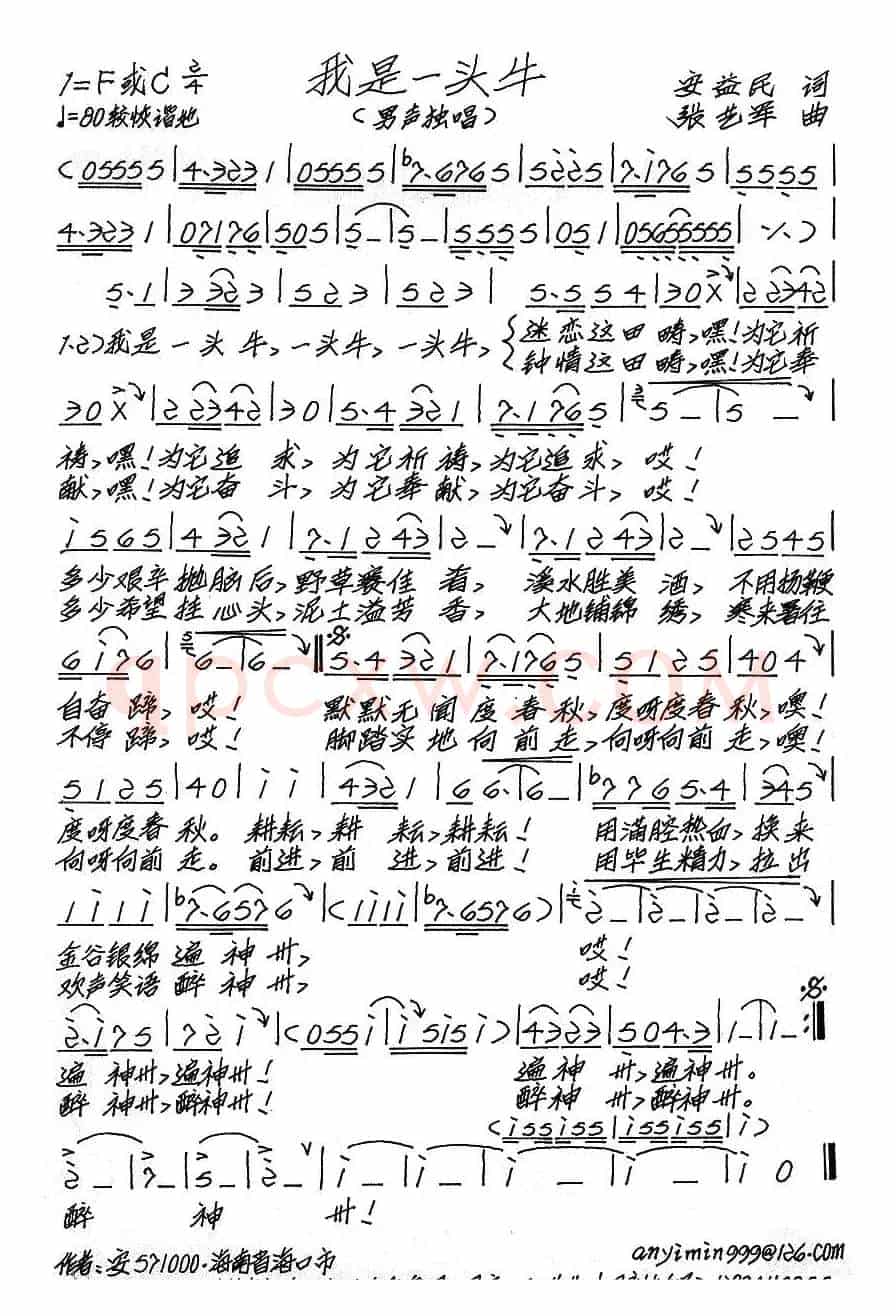 我是一头牛
1=F或C 2/4
安益民 词
♩=80较恢谐地
(男声独唱)
张艺军 曲
(05555|4·3231|05555|♭7·6765|5225|7·1765|5555|
4·3231|07176|505|5_|5_|5555|051|0565555|·/.)|
5·1|3323|523|523|5·554|30X|22342|
1·2)我是一头牛,一头牛,一头牛,{迷恋这田畴,嘿!为它祈
钟情这田畴,嘿!为它奉
30X|22342|30|5·4321|7·1765|5_|5_|
祷,嘿!为它追求,为它祈祷,为它追求,哎!
献,嘿!为它奋斗,为它奉献,为它奋斗,哎!
i565|4321|7·1243|2_|7·1243|2_|2545|
多少艰辛抛脑后,野草赛佳肴,溪水胜美酒,不用扬鞭
多少希望挂心头,泥土溢芳香,大地铺锦绣,寒来暑往
6i76|6_|6_‖5·4321|7·1765|5125|404|
自奋蹄,哎!默默无闻度春秋,度呀度春秋,噢!
不停蹄,哎!脚踏实地向前走,向呀向前走,噢!
5125|40|ii|4321|66·|6_|♭7765·4|345|
度呀度春秋。耕耘,耕耘,耕耘!用满腔热血,换来
向呀向前走。前进,前进,前进!用毕生精力,拉出
1i1i|♭7·6576|(1i1i|♭7·6576)|2_|2_|2_|2_|
金谷银绵遍神州,哎!
欢声笑语醉神州,哎!
2·i75|72i|(055i|i5i5i)|4323|504·3|1_|1_:‖
遍神州,遍神州!遍神州,遍神州。
醉神州,醉神州!醉神州,醉神州。
(i55i55|i55i55|i)
2_|7_|5_|2_|i_|i_|i_|i_|i0‖
醉神州!
作者:安571000·海南省海口市
anyimin999@126.com
qpcxw.com